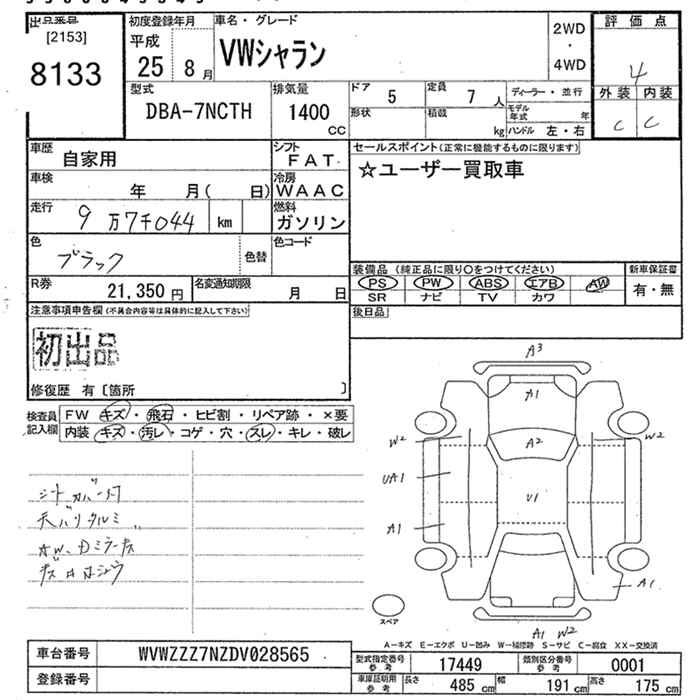 出品番号
[2153]
8133
初度登録年月
平成
25 8月
車名・グレード
VWシャラン
2WD
・
4WD
評価点
4
外装 内装
C C
型式
DBA-7NCTH
排気量
1400
CC
ドア 5
定員 7人
形状
積載 kg
ディーラー・並行
モデル年式 年
ハンドル 左・右
車歴 自家用
シフト FAT
車検 年 月( 日)
冷房 WAAC
走行 9万7千044 km
燃料 ガソリン
色 ブラック
色替
色コード
R券 21,350円
名変通知期限 月 日
セールスポイント(正常に機能するものに限ります)
☆ユーザー買取車
装備品(純正品に限り○をつけてください)
PS PW ABS エアB AW
SR ナビ TV カワ
新車保証書
有・無
後日品
注意事項申告欄(不具合内容等は具体的に記入して下さい)
初出品
修復歴 有〔箇所 〕
検査員記入欄
FW キズ・飛石・ヒビ割・リペア跡・×要
内装 キズ・汚レ・コゲ・穴・スレ・キレ・破レ
シートカバー付
天バリタルミ
A3
A1
A2
U1
W2
UA1
A1
W2
A1
A1 W2
スペア
A-キズ E-エクボ U-凹み W-補修跡 S-サビ C-腐食 XX-交換済
車台番号 WVWZZZ7NZDV028565
登録番号
型式指定番号参考 17449
類別区分番号参考 0001
車庫証明用参考 長さ 485cm 幅 191cm 高さ 175cm